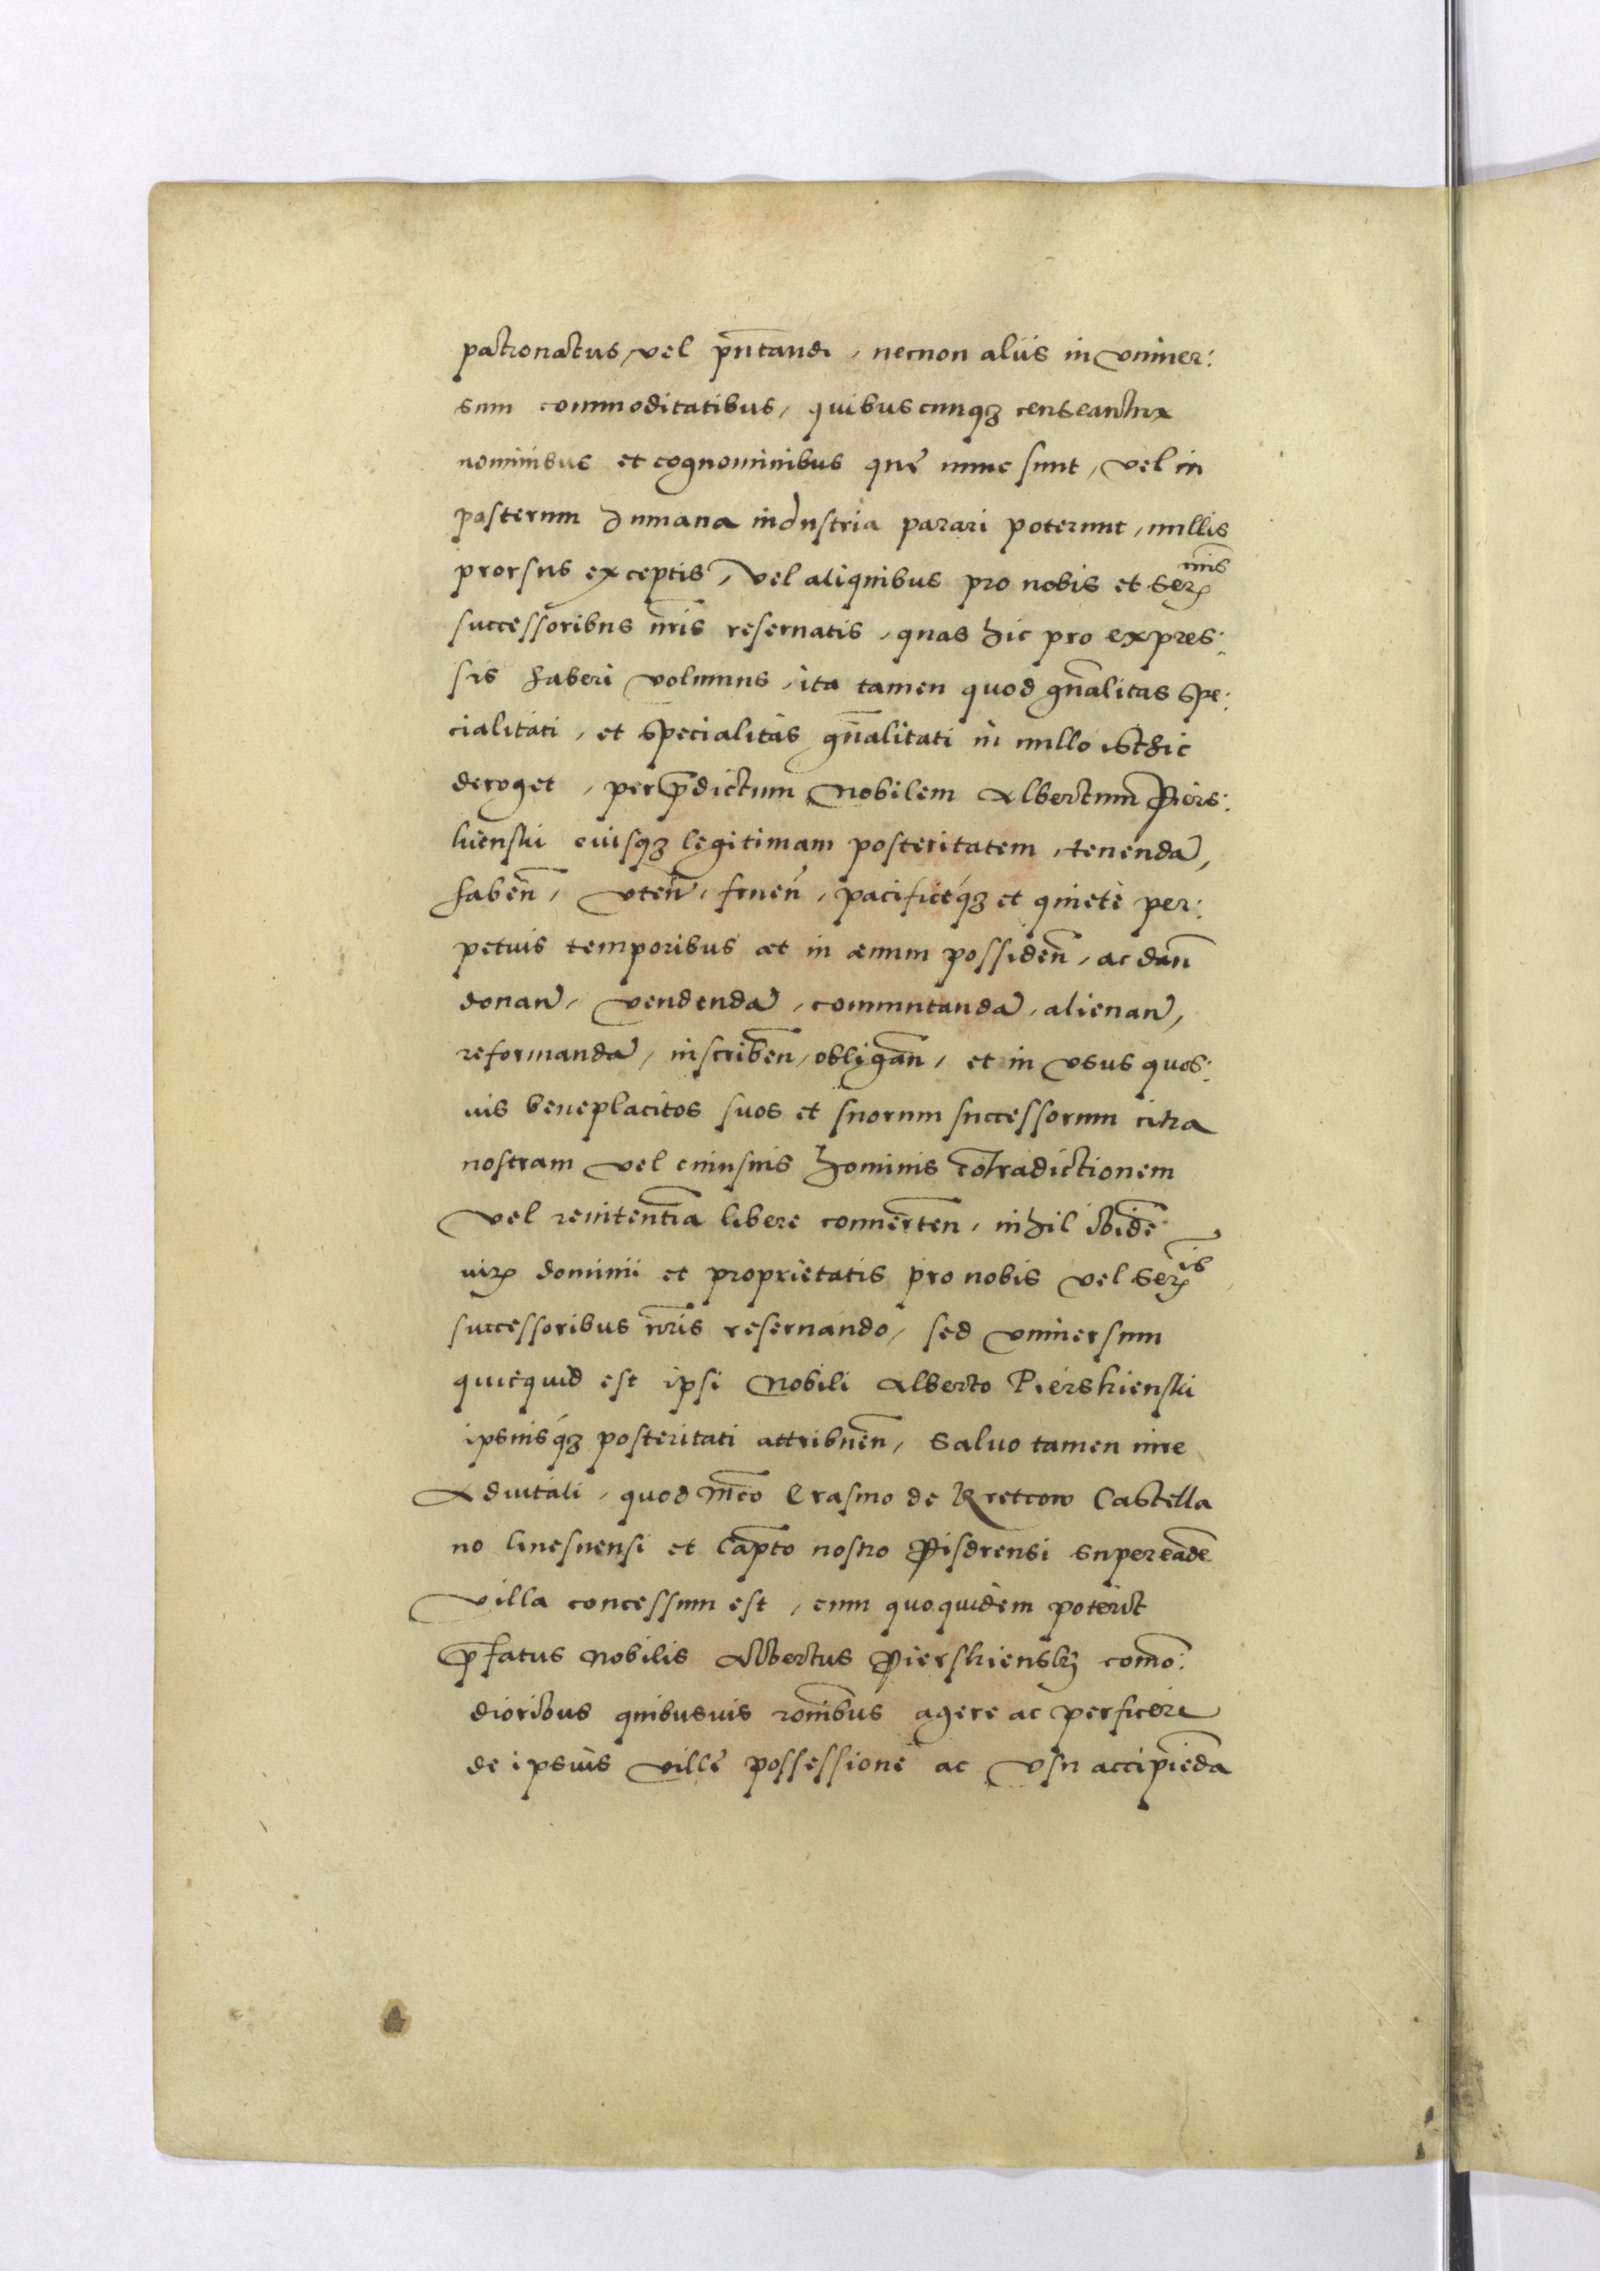 patronatus, vel pr̄ntandi, necnon aliis in vniuer:
sum commoditatibus, quibuscunqꝫ censeantur
nominibus et cognominibus quę nunc sunt, vel in
posterum humana industria parari poterunt, nullis
prorsus exceptis, vel aliquibus pro nobis et Serꝫ mis
successoribus nr̄is reseruatis, quas hic pro expres:
sis haberi volumus, ita tamen quod gn̄alitas spe:
cialitati, et specialitas gn̄alitati in nullo isthic
deroget, per p̄dictum Nobilem Albertum Piers:
kienski eiusqꝫ legitimam posteritatem, tenendā,
haben̄, vten̄, fruen̄, pacificéqꝫ et quietè per:
petuis temporibus et in æuum possiden̄, ac dan̄
donan̄, vendendā, commutandā, alienan̄,
reformandā, inscriben̄, obligan̄, et in vsus quos:
uis beneplacitos suos et suorum successorum citra
nostram vel cuiusuis hominis cōtradictionem
vel renitentia libere conuerten̄, nihil ibidē
iurꝫ dominii et proprietatis pro nobis vel Serꝫ ib
successoribus nr̄is reseruando, sed vniuersum
quicquid est ipsi Nobili Alberto Pierskienski
ipsiusqꝫ posteritati attribuen̄, Saluo tamen iure
Aduitali, quod Mc̄o Erasmo de Kretcow Castella
no Gnesnensi et Cap̄to nostro Pisdrensi super eadē
villa concessum est, cum quo quidem poterit
p̄fatus Nobilis Albertus Pierskiensky com̄o:
dioribus quibusuis rōnibus agere ac perficere
de ipsius villę possessione ac vsu accipienda